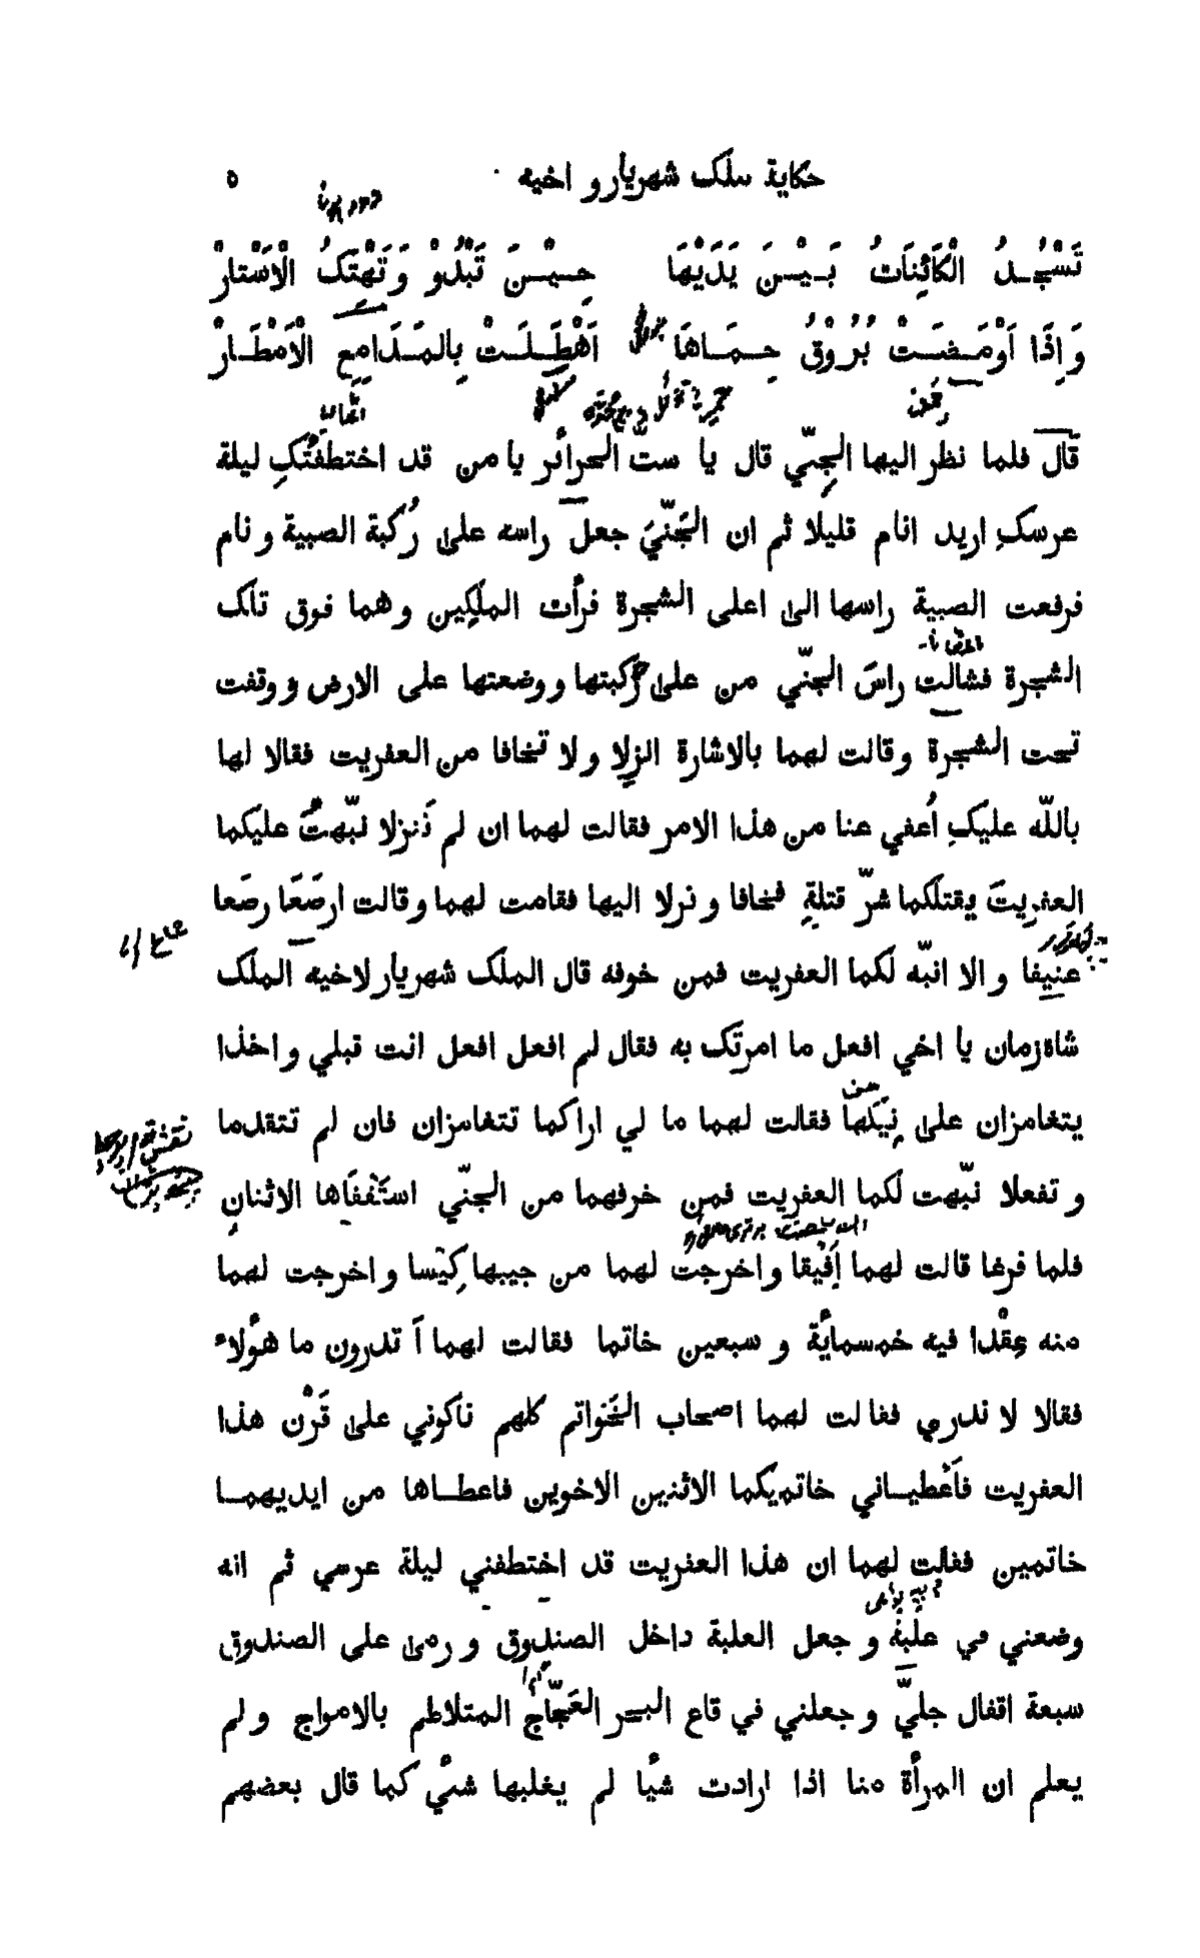 حكاية ملك شهريار و اخيه ٥
تَسْجُدُ الْكَائِنَاتُ بَيْنَ يَدَيْهَا حِيْنَ تَبْدُوْ وَتَهْتِكُ الْاَسْتارْ
وَاِذَا اَوْمَضَتْ بُرُوْقُ حِمَاهَا اَهْطَلَتْ بِالمَدَامِعِ الْاَمْطَارْ
قال فلما نظر اليها الجِنّي قال يا ستّ الحرائر يا من قد اختطفتُكِ ليلة
عرسكِ اريد انام قليلا ثم ان الجَنّيَ جعل راسه على رُكبة الصبية و نام
فرفعت الصبية راسها الى اعلى الشجرة فرأت الملكين و هما فوق تلك
الشجرة فشالت راسَ الجنّي من على ركبتها و وضعتها على الارض و وقفت
تحت الشجرة و قالت لهما بالاشارة انزلا و لا تخافا من العفريت فقالا لها
باللّه عليكِ اُعفي عنا من هذا الامر فقالت لهما ان لم تنزلا نبّهتُ عليكما
العفريتَ يقتلكما شرّ قتلةٍ فخافا و نزلا اليها فقامت لهما و قالت ارصَعَا رصَعا
عنيفا و الا انبّه لكما العفريت فمن خوفه قال الملك شهريار لاخيه الملك
شاه زمان يا اخي افعل ما امرتك به فقال لم افعل افعل انت قبلي و اخذا
يتغامزان على نِيَكها فقالت لهما ما لي اراكما تتغامزان فان لم تتقدما
و تفعلا نبّهت لكما العفريت فمن خوفهما من الجنّي استَفْفَاها الاثنانِ
فلما فرغا قالت لهما اَفِيْقا و اخرجت لهما من جيبها كِيْسا و اخرجت لهما
منه عِقْدا فيه خمسمأية و سبعين خاتما فقالت لهما اَ تدرون ما هؤلاء
فقالا لا ندري فقالت لهما اصحاب الخَواتم كلهم ناكوني على قَرْن هذا
العفريت فاَعْطياني خاتميكما الاثنين الاخوين فاعطاها من ايديهما
خاتمين فقالت لهما ان هذا العفريت قد اختطفني ليلة عرسي ثم انه
وضعني في علبة و جعل العلبة داخل الصندوق و رمى على الصندوق
سبعة اقفال جليّ و جعلني في قاع البحر العَجّاج المتلاطم بالامواج و لم
يعلم ان المرأة منا اذا ارادت شيأ لم يغلبها شيء كما قال بعضهم